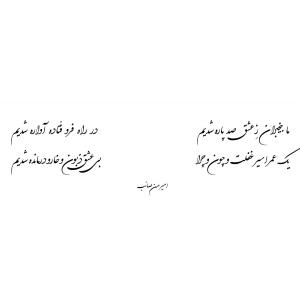 ما بیخبران ز عشق صد پاره شدیم
در راه فرو فتاده آواره شدیم
یک عمر اسیر غفلت و چون و چرا
بی عشق زبون و خار و درمانده شدیم
امیرحسن صائب